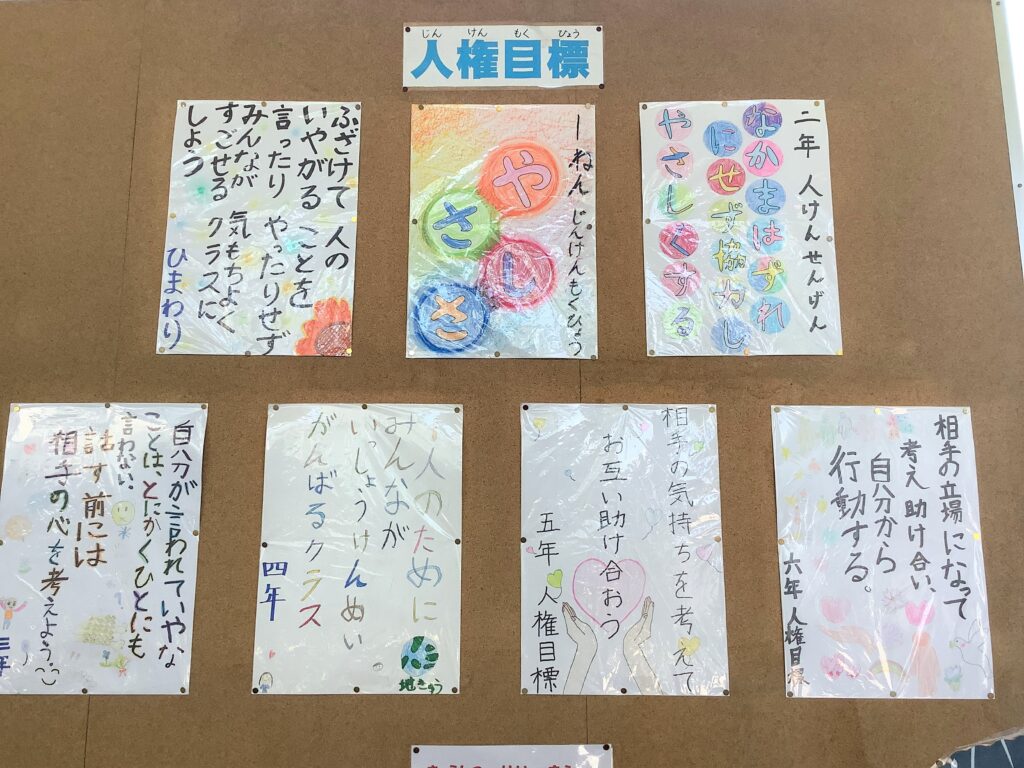 じん けん もく ひょう
人権目標
ふざけて 人の
いやがる ことを
言ったり やったりせず
みんなが 気もちよく
すごせる クラスに
しよう
ひまわり
一ねん じんけんもくひょう
やさしさ
二年 人けんせんげん
なかまはずれ
にせず協力し
やさしくする
自分が言われていやな
ことは、とにかくひとにも
言わない。
話す前には
相手の心を考えよう。
三年
一人のために
みんなが
いっしょうけんめい
がんばるクラス
四年
地きゅう
相手の気持ちを考えて
お互い助け合おう
五年 人権目標
相手の立場になって
考え助け合い、
自分から
行動する。
六年 人権目標